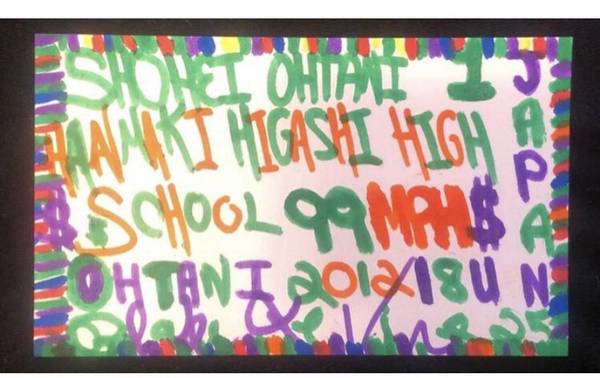 SHOHEI OHTANI 1
HANMAKI HIGASHI HIGH
$ SCHOOL 99 MPH $
OHTANI 2012/18U
JAPAN